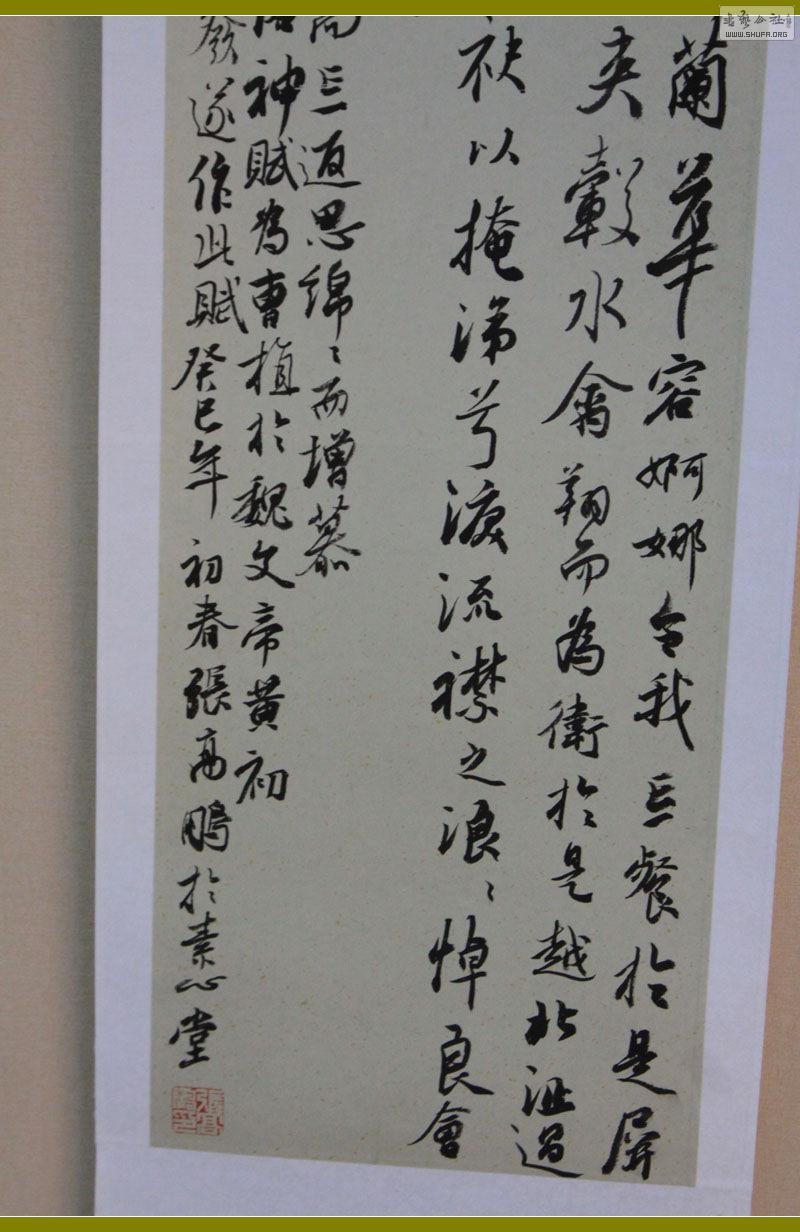 蘭華容婀娜令我忘餐於是屏
夾轂水禽翔而為衛於是越北沚過
袂以掩涕兮淚流襟之浪〻悼良會
而忘返思綿〻而增慕
洛神賦為曹植於魏文帝黄初
發遂作此賦癸巳年初春張高鵬於素心堂
書藝公社
WWW.SHUFA.ORG